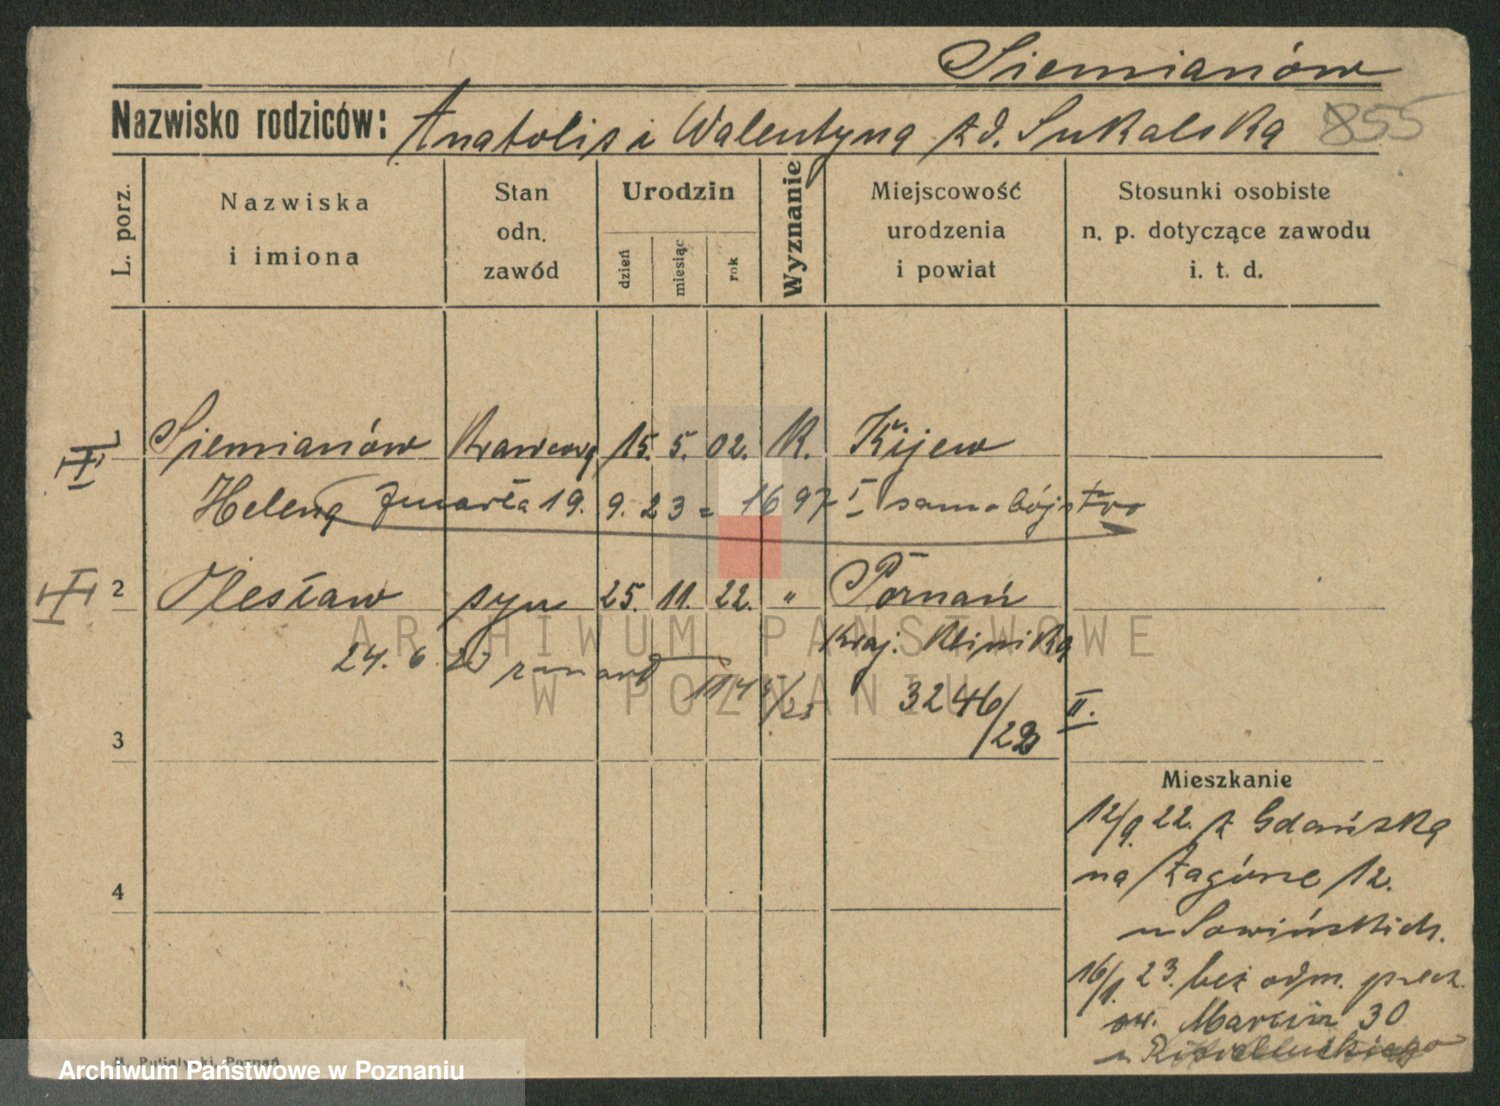 Siemianów
Nazwisko rodziców: Anatolis i Walentyna zd. Sukalska 855
L. porz.
Nazwiska i imiona
Stan odn. zawód
Urodzin
dzień
miesiąc
rok
Wyznanie
Miejscowość urodzenia i powiat
Stosunki osobiste n. p. dotyczące zawodu i. t. d.
III Siemianów Krawcowa 15. 5. 02. R. Kijew
Helena zmarła 19. 9. 23 = 1697 I samobójstwo
III 2 Olesław syn 25. 11. 22. " Poznań
Kraj. Klinika
24. 6. 23 zmarł
3246/22 II.
3
Mieszkanie
12/9. 22. z Gdańska
na Zagórze 12.
u Sowińskich.
4
16/1. 23. bez odm.
św. Marcin 30
u
Archiwum Państwowe w Poznaniu
ARCHIWUM PAŃSTWOWE
W POZNANIU